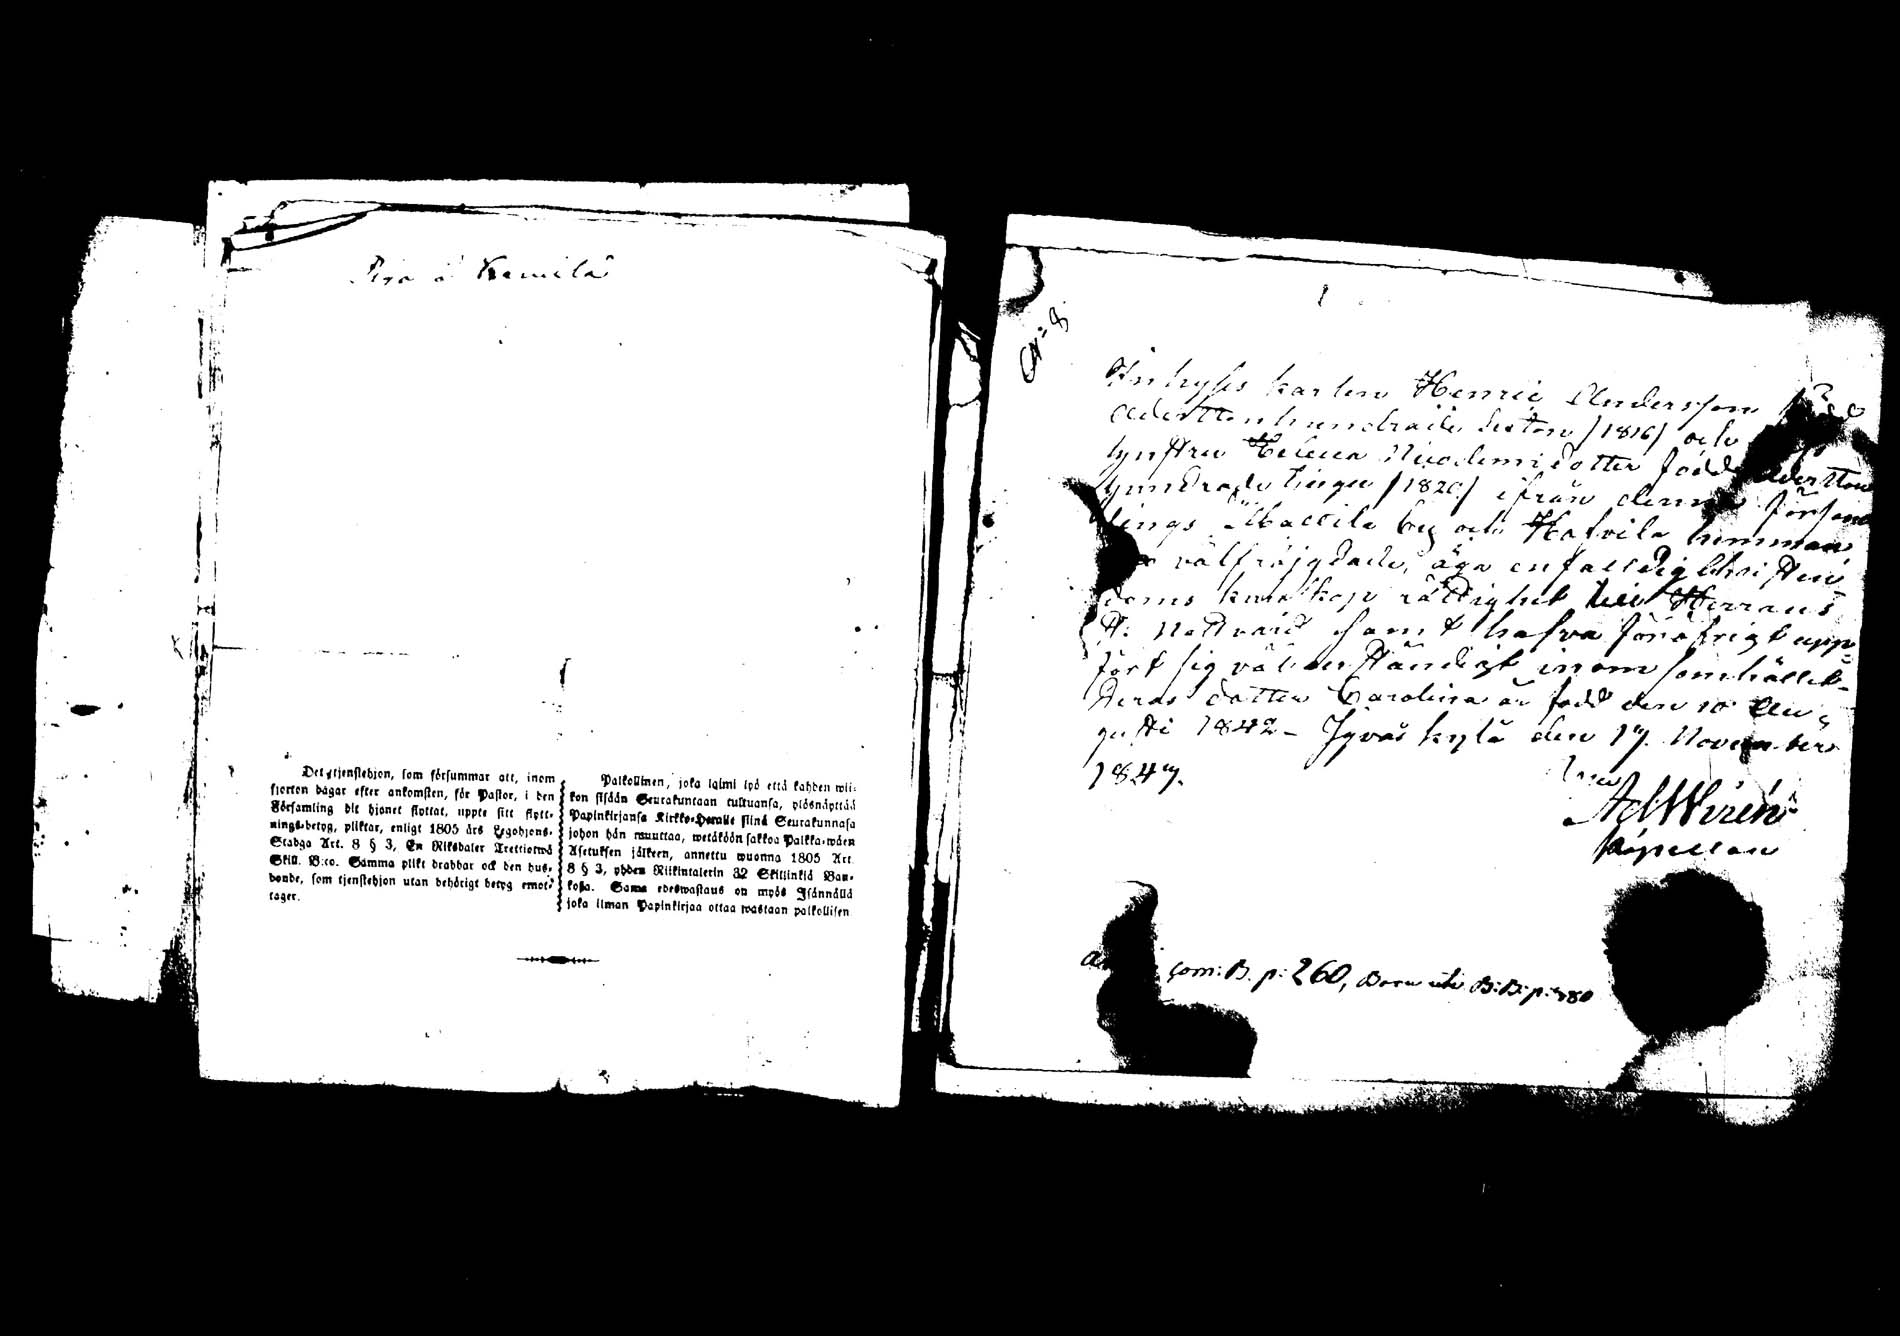 Piga å Kemilä
Det tjenstehjon, som försummar att, inom
fjorton dagar efter ankomsten, för Pastor, i den
Församling dit hjonet flyttat, uppte sitt flytt-
nings-betyg, pliktar, enligt 1805 års Legohjons-
Stadga Art. 8 § 3, En Riksdaler Trettiotwå
Skill. B:co. Samma plikt drabbar ock den hus-
bonde, som tjenstehjon utan behörigt betyg emot-
tager.
Palkollinen, joka laimi lyö että kahden wii-
kon sisään Seurakuntaan tultuansa, ylösnäyttää
Papinkirjansa Kirkko-Herralle siinä Seurakunnasa
johon hän muuttaa, wetäköön sakkoa Palkka-wäen
Asetuksen jälkeen, annettu wuonna 1805 Art.
8 § 3, yhden Riikintalerin 32 Skillinkiä Ban-
kosa. Sama edeswastaus on myös Isännällä
joka ilman Papinkirjaa ottaa wastaan palkollisen
N:8
Inhyses karlen Henric Andersson
Adertonhundrade sexton /1816/ och
hustru Helena Nicodemidotter född Aderton
hundrade tjugu /1820/ ifrån denna Försam
lings by och Hafvila hemman
välfräjgdade, äga enfaldig Christen
doms kunskap rättighet till Herrans
H: Nattvard samt hafva föröfrigt upp-
fört sig väl anständigt inom samhället.
Deras dotter Carolina är född den 10 Au-
gusti 1842 – Jyväskylä den 17 November
1847.
Kapellan
com: B. p: 260, Barn uti B: B: p: 780